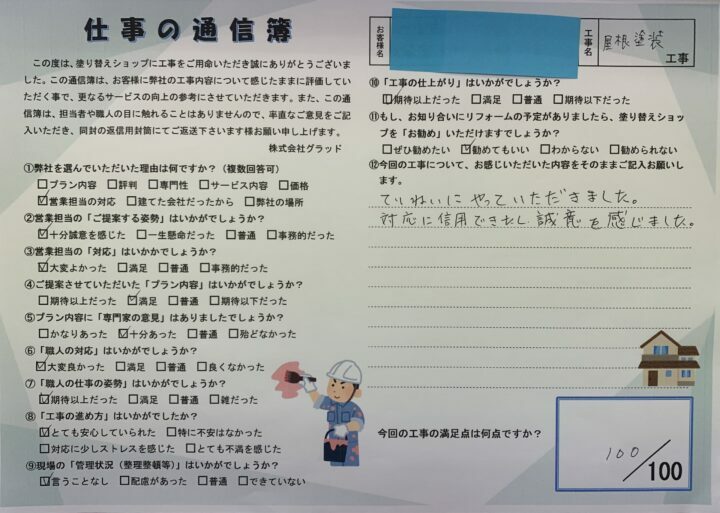 仕事の通信簿
この度は、塗り替えショップに工事をご用命いただき誠にありがとうございま
した。この通信簿は、お客様に弊社の工事内容について感じたままに評価してい
ただく事で、更なるサービスの向上の参考にさせていただきます。また、この通
信簿は、担当者や職人の目に触れることはありませんので、率直なご意見をご記
入いただき、同封の返信用封筒にてご返送下さいます様お願い申し上げます。
株式会社グラッド
①弊社を選んでいただいた理由は何ですか?(複数回答可)
□プラン内容 □評判 □専門性 □サービス内容 □価格
☑営業担当の対応 □建てた会社だったから □弊社の場所
②営業担当の「ご提案する姿勢」はいかがでしょうか?
☑十分誠意を感じた □一生懸命だった □普通 □事務的だった
③営業担当の「対応」はいかがでしょうか?
☑大変よかった □満足 □普通 □事務的だった
④ご提案させていただいた「プラン内容」はいかがでしょうか?
□期待以上だった ☑満足 □普通 □期待以下だった
⑤プラン内容に「専門家の意見」はありましたでしょうか?
□かなりあった ☑十分あった □普通 □殆どなかった
⑥「職人の対応」はいかがでしょうか?
☑大変良かった □満足 □普通 □良くなかった
⑦「職人の仕事の姿勢」はいかがでしょうか?
☑期待以上だった □満足 □普通 □雑だった
⑧「工事の進め方」はいかがでしたか?
☑とても安心していられた □特に不安はなかった
□対応に少しストレスを感じた □とても不満を感じた
⑨現場の「管理状況(整理整頓等)」はいかがでしょうか?
☑言うことなし □配慮があった □普通 □できていない
お客様名
工事名
屋根塗装
工事
⑩「工事の仕上がり」はいかがでしょうか?
☑期待以上だった □満足 □普通 □期待以下だった
⑪もし、お知り合いにリフォームの予定がありましたら、塗り替えショッ
プを「お勧め」いただけますでしょうか?
□ぜひ勧めたい ☑勧めてもいい □わからない □勧められない
⑫今回の工事について、お感じいただいた内容をそのままご記入お願いし
ます。
ていねいにやっていただきました。
対応に信用できたし、誠意を感じました。
今回の工事の満足点は何点ですか?
100/100